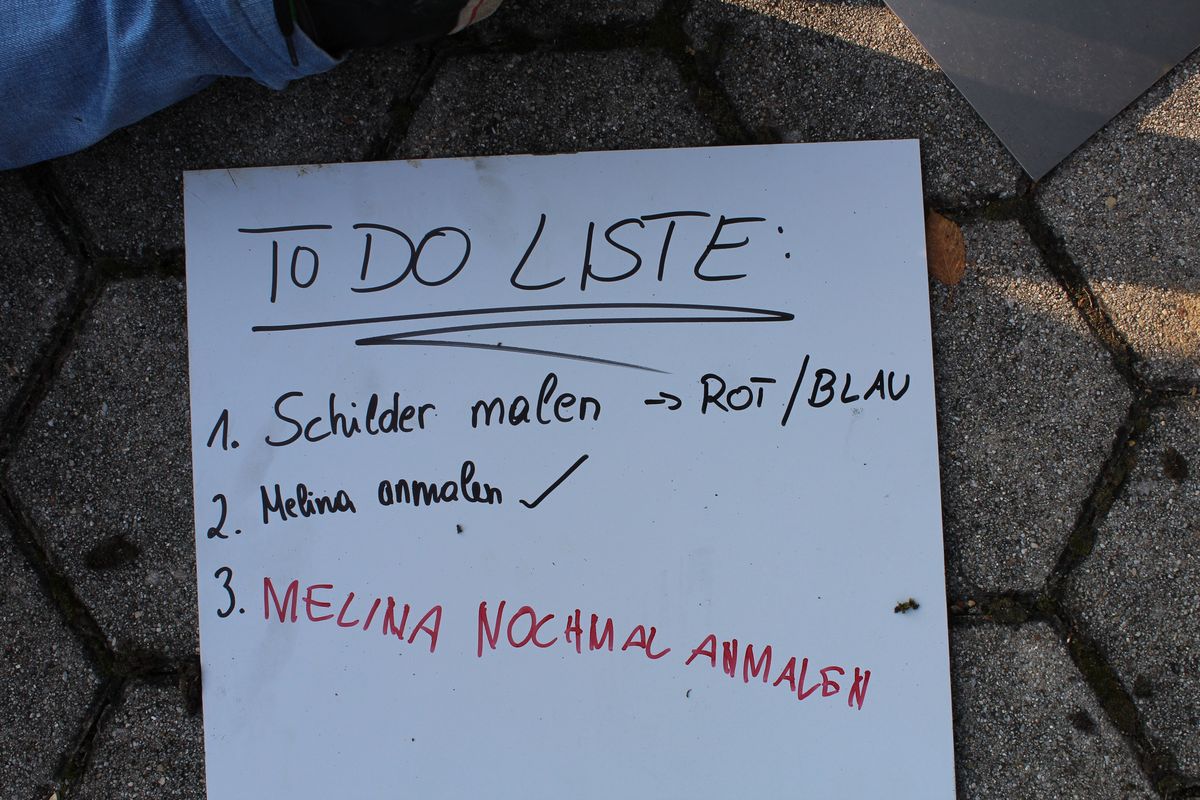 TO DO LISTE:
1. Schilder malen → ROT/BLAU
2. Melina anmalen ✓
3. MELINA NOCHMAL ANMALEN